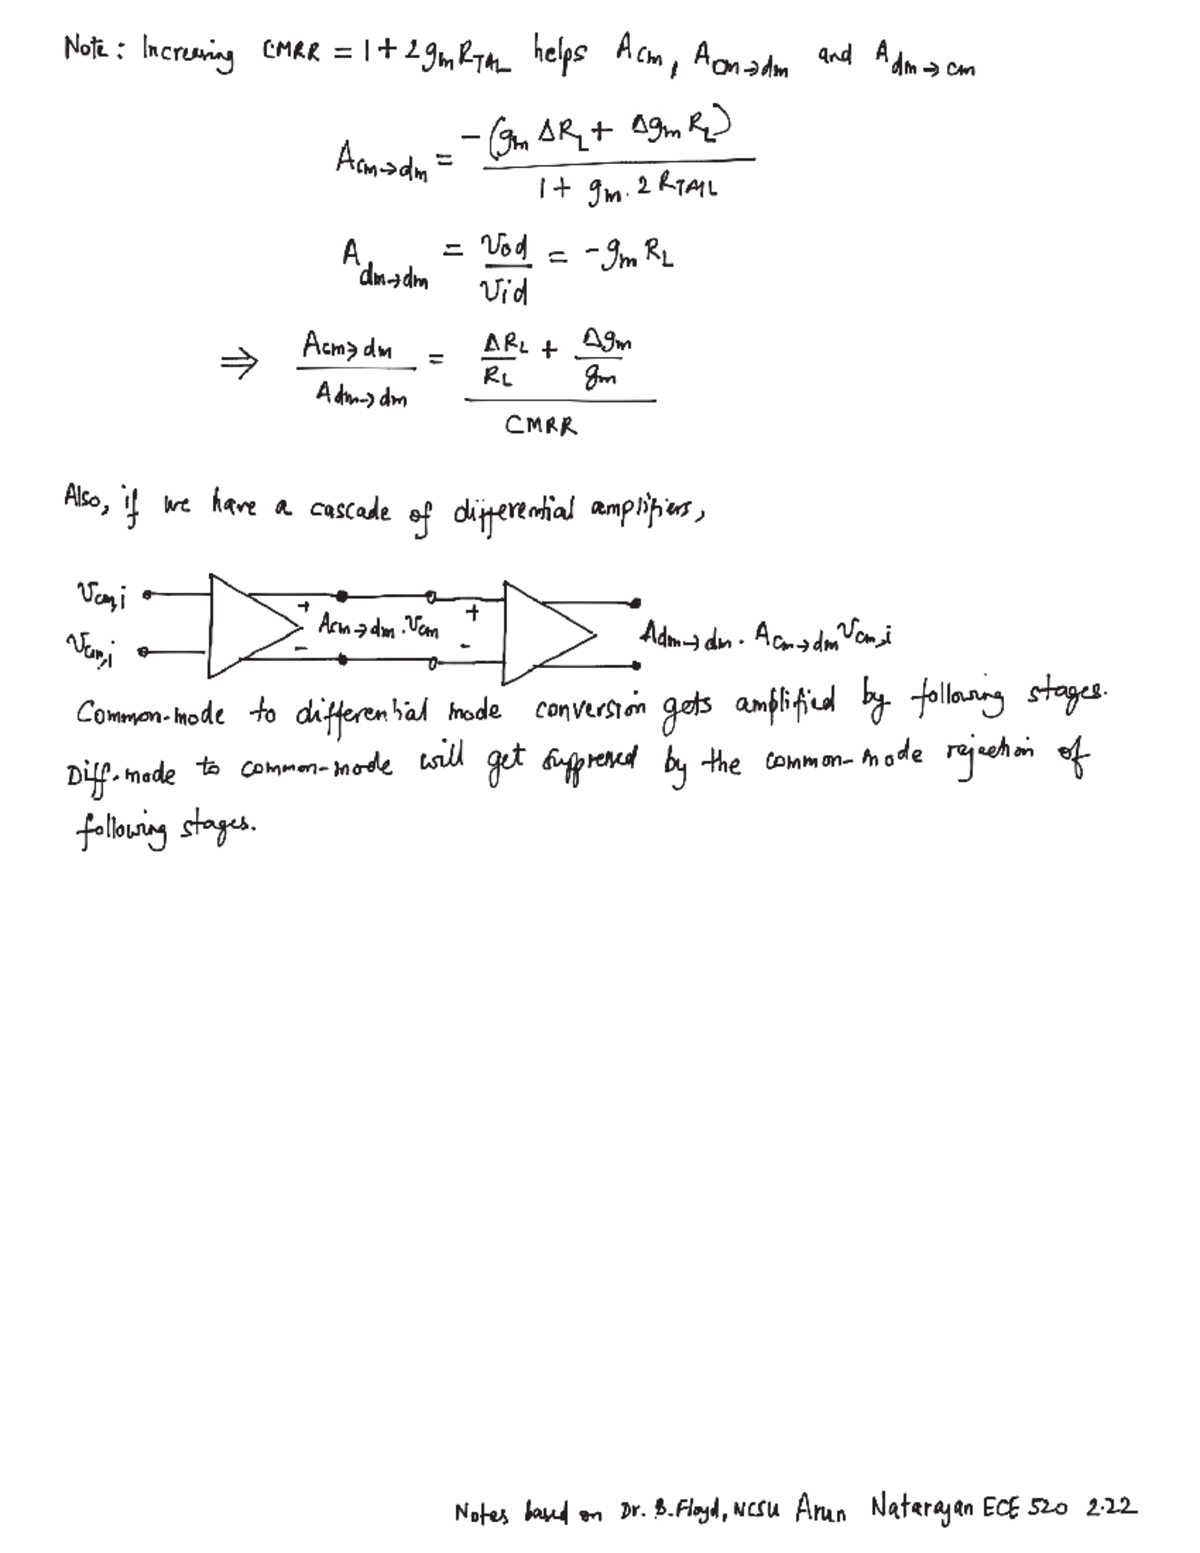 Note: Increasing CMRR = 1 + 2 gm RTAIL helps Acm, Acm→dm and Adm→cm
Acm→dm = -(gm ΔRL + Δgm RL) / 1 + gm. 2 RTAIL
Adm→dm = Vod / Vid = -gm RL
⇒ Acm→dm / Adm→dm = ΔRL / RL + Δgm / gm / CMRR
Also, if we have a cascade of differential amplifiers,
Vcm,i
+ Acm→dm . Vcm -
+ -
Vcm,i
Adm→dm . Acm→dm Vcm,i
Common-mode to differential mode conversion gets amplified by following stages.
Diff-mode to common-mode will get suppressed by the common-mode rejection of
following stages.
Notes based on Dr. B. Floyd, NCSU Arun Natarajan ECE 520 2.22